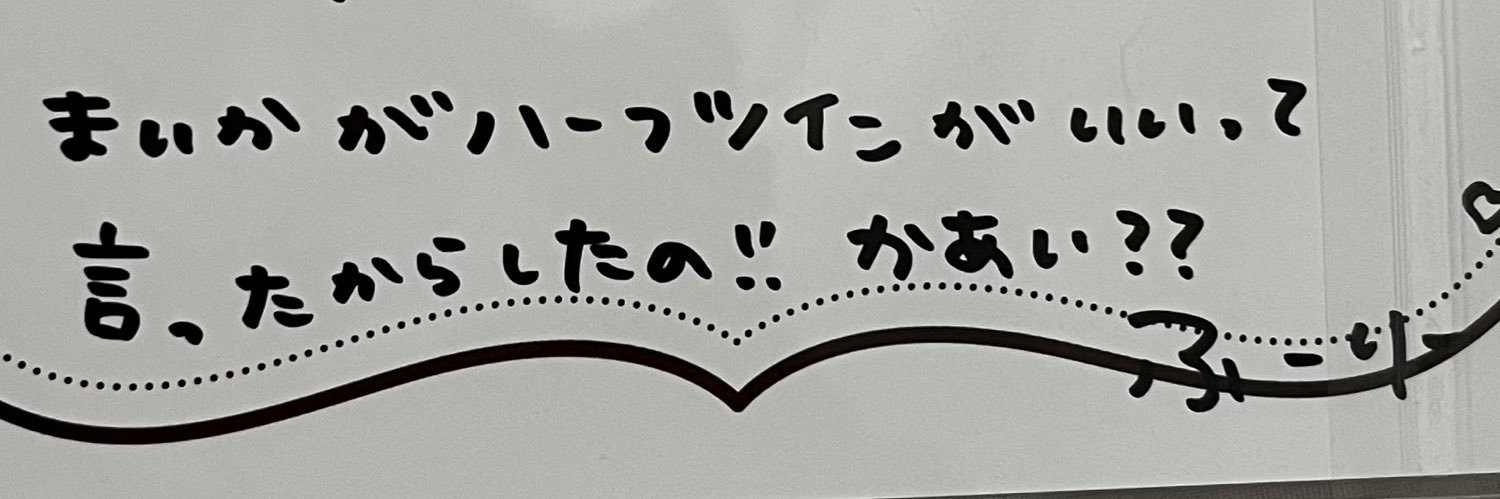 まいかがハーフツインがいいって
言ったからしたの!! かあい??
ふーりー